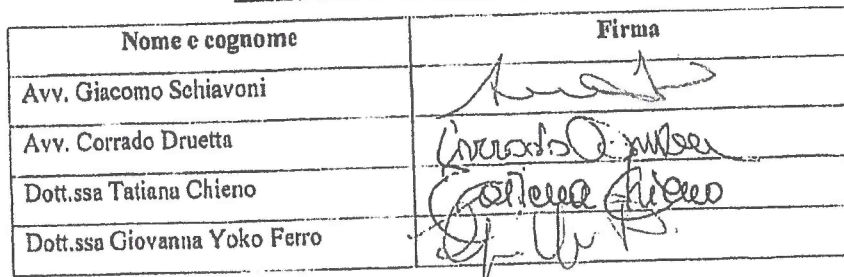 Nome e cognome Firma
Avv. Giacomo Schiavoni
Avv. Corrado Druetta Corrado Druetta
Dott.ssa Tatiana Chieno Tatiana Chieno
Dott.ssa Giovanna Yoko Ferro